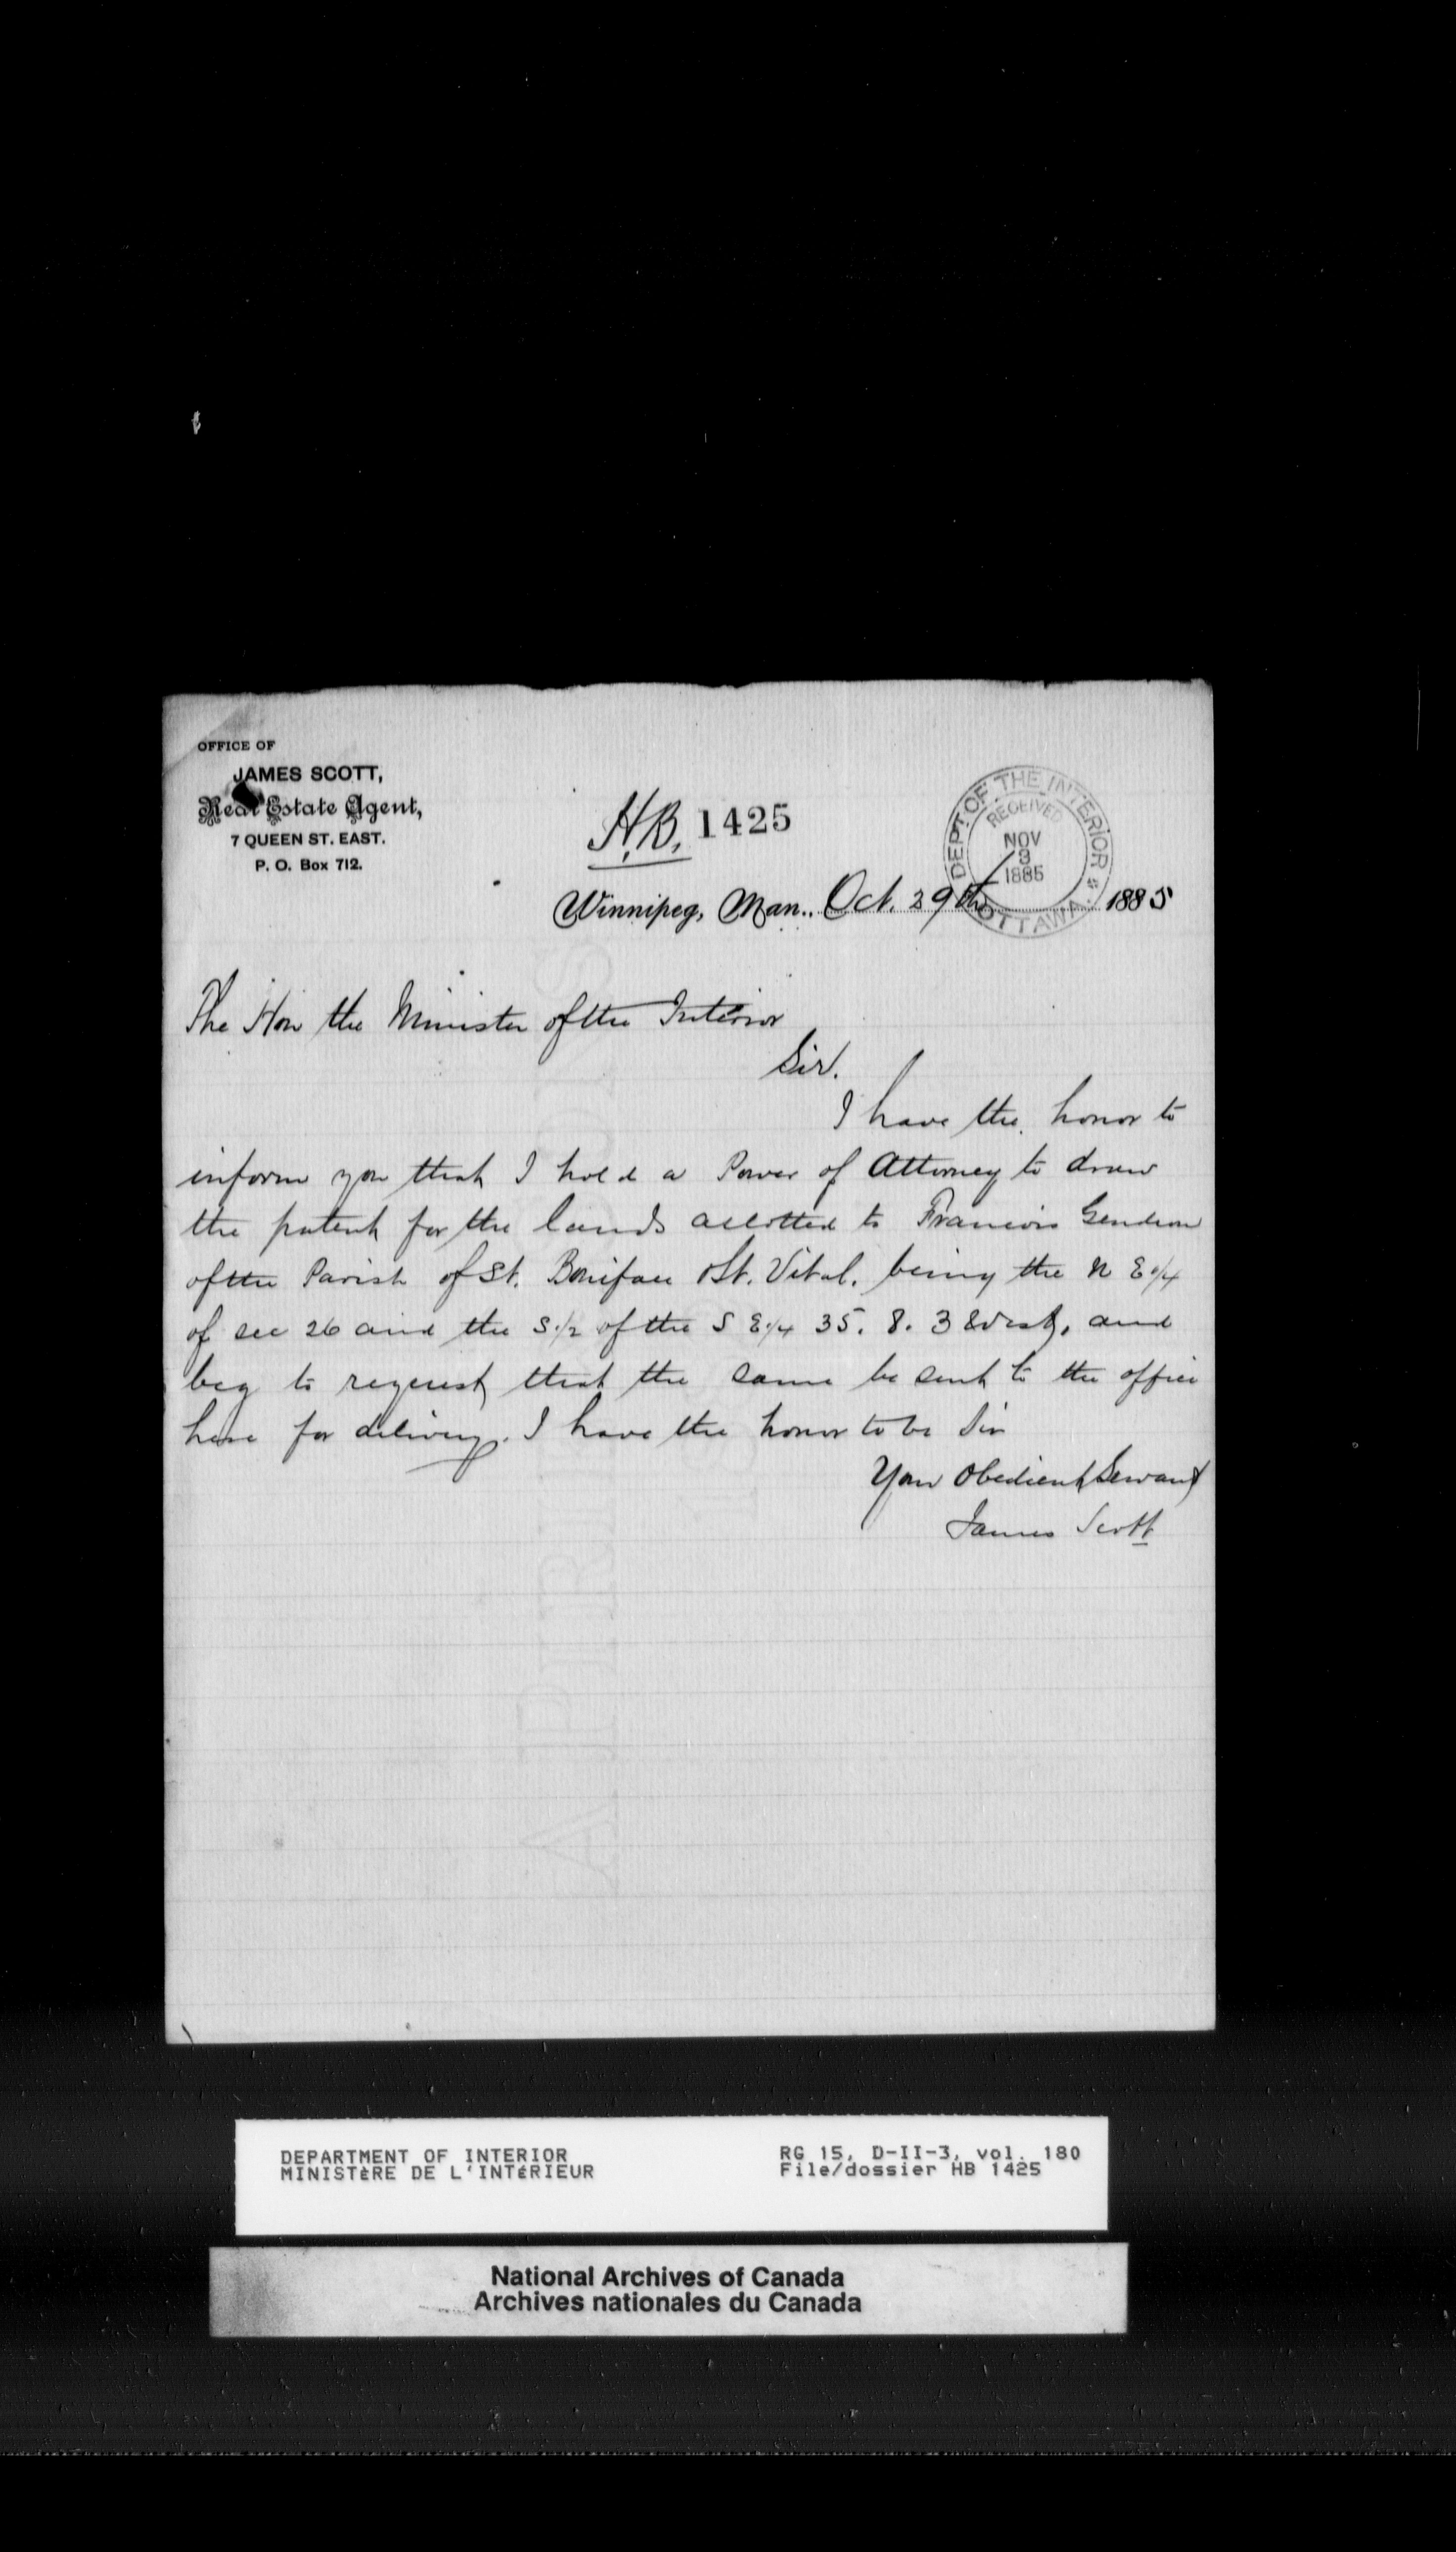 OFFICE OF
JAMES SCOTT,
Real Estate Agent,
7 QUEEN ST. EAST.
P. O. Box 712.
H.B. 1425
DEPT. OF THE INTERIOR
RECEIVED
NOV
3
1885
OTTAWA
Winnipeg, Man., Oct. 29th 1885
The Hon the Minister of the Interior
Sir.
I have the honor to
inform you that I hold a Power of Attorney to draw
the patent for the lands allotted to Francois Gendron
of the Parish of St. Boniface St. Vital. being the N E 1/4
of sec 26 and the S 1/2 of the S E 1/4 35. 8. 3 and
beg to request that the same be sent to the office
here for delivery. I have the honor to be Sir
Your Obedient Servant
James Scott
DEPARTMENT OF INTERIOR
MINISTÈRE DE L'INTÉRIEUR
RG 15, D-II-3, vol. 180
File/dossier HB 1425
National Archives of Canada
Archives nationales du Canada